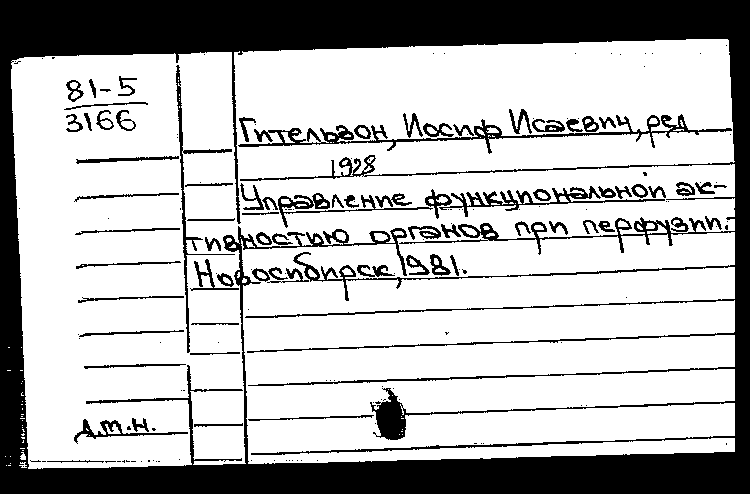 81-5
3166
Гительзон, Иосиф Исаевич, ред.
1928
Управление функциональной ак-
тивностью органов при перфузии.-
Новосибирск, 1981.
д.т.н.